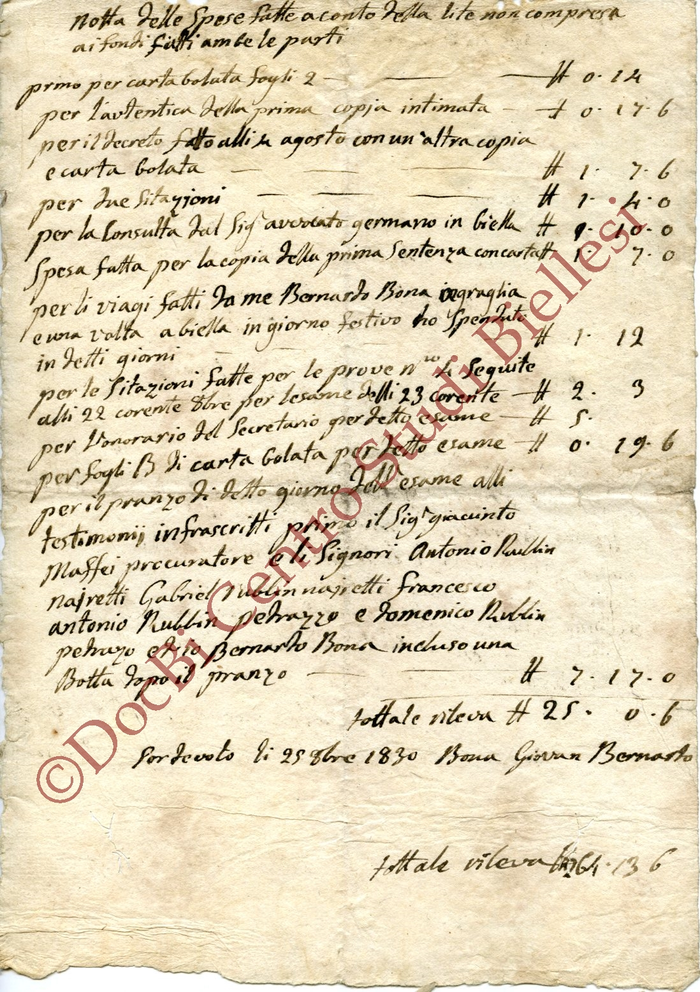 Notta delle Spese fatte a conto della lite non compresa
ai fondi fatti ambe le parti
prmo per carta bolata fogli 2 — H 0. 14
per l'autentica della prima copja intimata — H 0. 17. 6
per il decreto fatto alli 4 agosto con un altra copia
e carta bolata — H 1. 7. 6
per due Sitazioni — H 1. 4. 0
per la Consulta dal Sigr avvocato germano in biella H 1. 10. 0
Spesa fatta per la copia della prima Sentenza con carta H 1. 7. 0
per li viagi fatti da me Bernardo Bona in graglia
e una volta a biella in giorno festivo ho Spenduto
in detti giorni — H 1. 12
per le Sitazioni fatte per le prove n 4 Seguite
alli 22 corente 8bre per lesame delli 23 corente — H 2. 3
per l'onorario del Secretario per detto esame — H 5.
per fogli 13 di carta bolata per detto esame — H 0. 19. 6
per il pranzo di detto giorno dell'esame alli
testimonij infrascritti primo il Sigr giacinto
Maffei procuratore e li Signori Antonio Rubbin
najretti Gabriel rublin najretti francesco
antonio Rubbin petrazzo e domenico Rubbin
petrazo ed io Bernardo Bona incluso una
Botta dopo il pranzo — H 7. 17. 0
tottale rileva H 25. 0. 6
Sordevolo li 25 8bre 1830 Bona Giovan Bernardo
tottale rileva 64. 13 6
©DocBi Centro Studi Biellesi